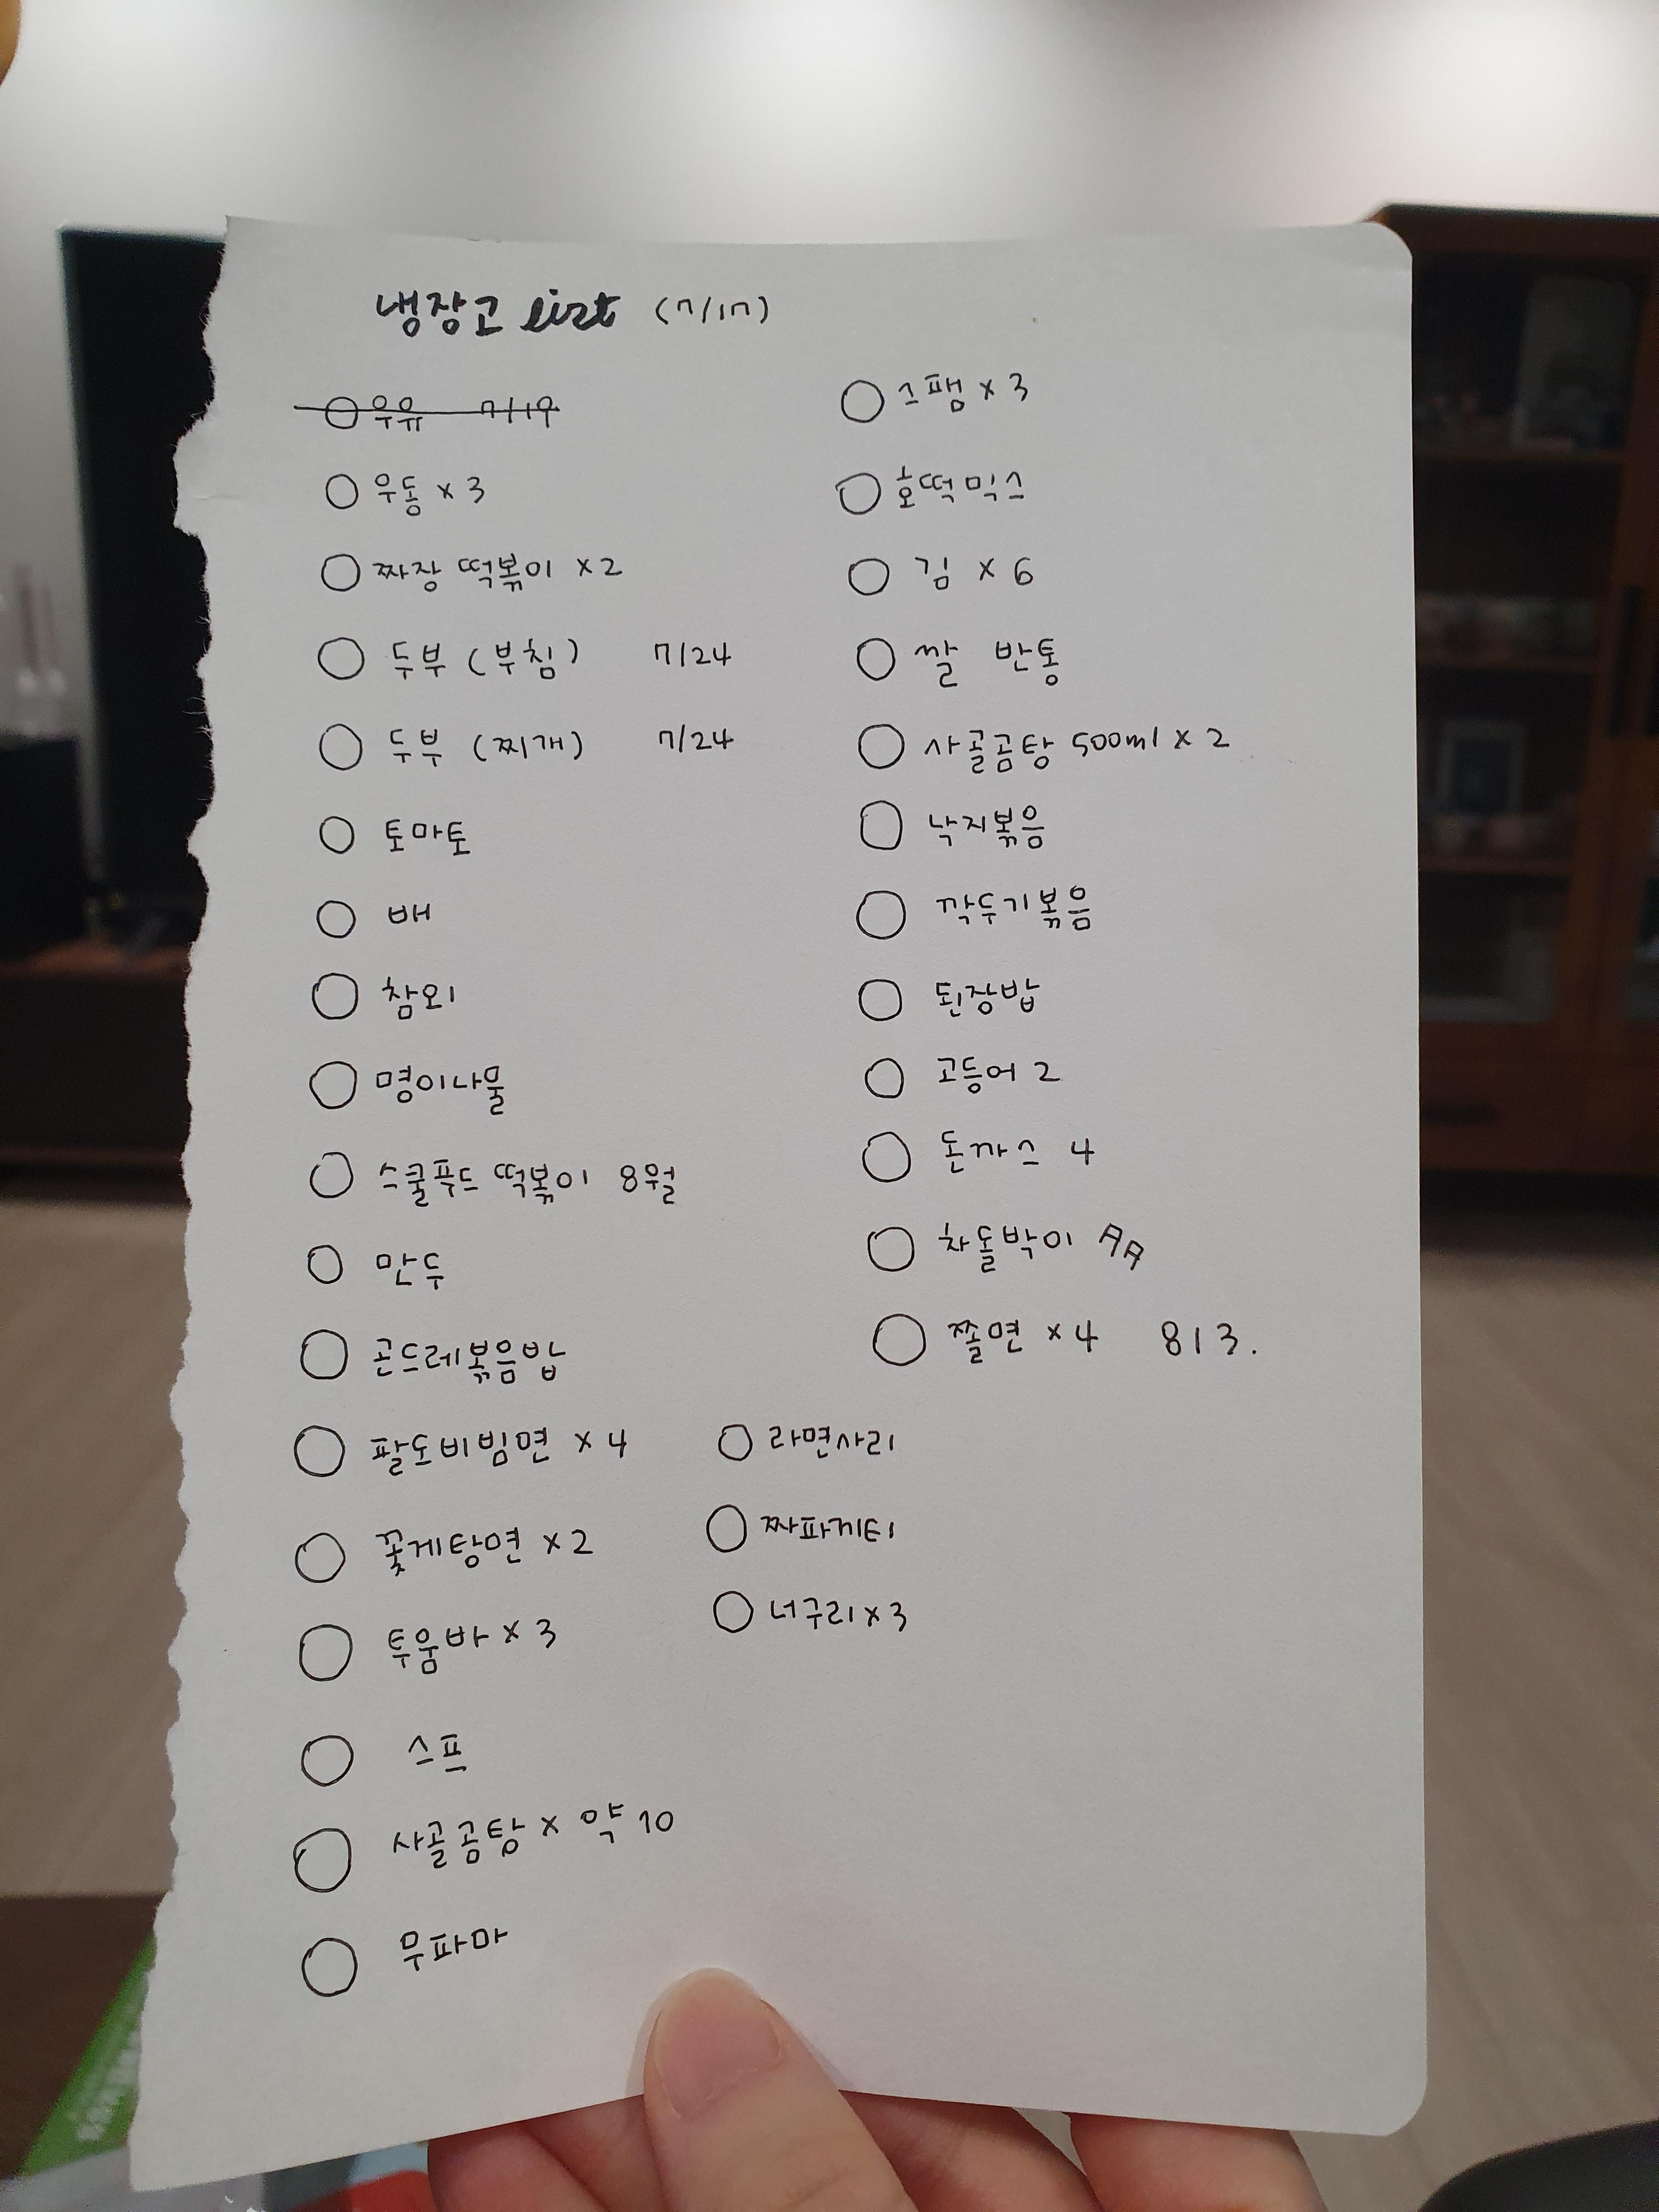 냉장고 list (7/17)
우유 7/19
우동 x 3
짜장 떡볶이 x 2
두부 (부침) 7/24
두부 (찌개) 7/24
토마토
배
참외
명이나물
스쿨푸드 떡볶이 8월
만두
곤드레볶음밥
팔도비빔면 x 4
꽃게탕면 x 2
투움바 x 3
스프
사골곰탕 x 약 10
무파마
스팸 x 3
호떡믹스
김 x 6
쌀 반통
사골곰탕 500ml x 2
낙지볶음
깍두기볶음
된장밥
고등어 2
돈까스 4
차돌박이
쫄면 x 4 813.
라면사리
짜파게티
너구리 x 3